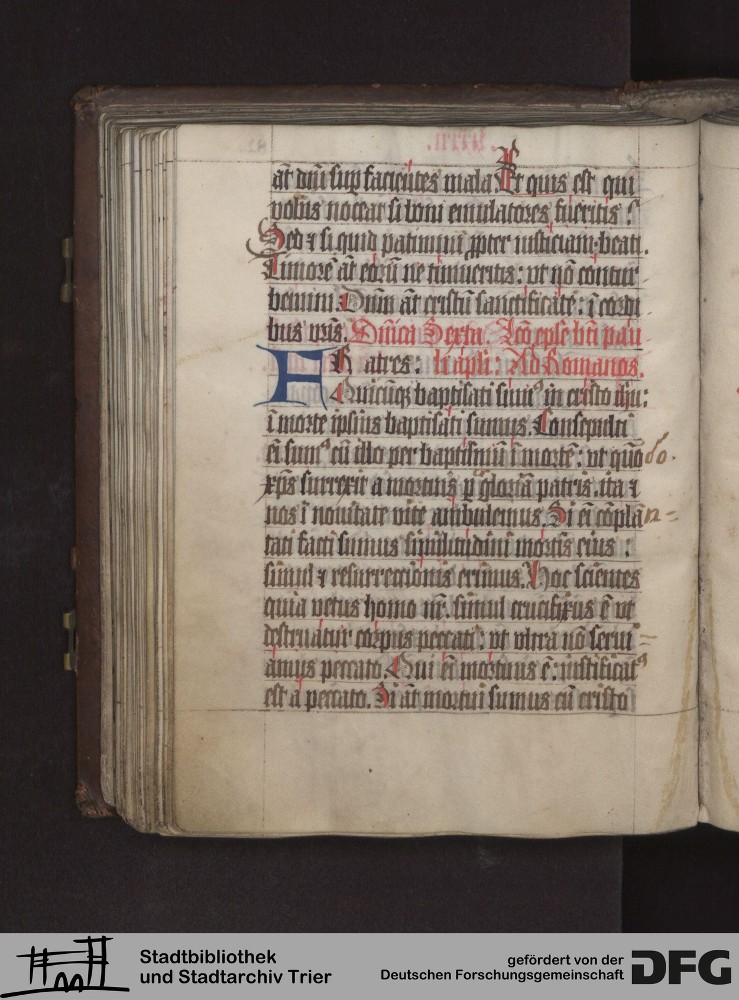 āt dn̄i sup facientes mala. Et quis est qui
vobis noceat si boni emulatores fueritis?
Sed ⁊ si quid patimini ꝓpter iusticiam: beati.
Timorē āt eorū ne timueritis: vt nō contur
bemini. Dn̄m āt cristū sanctificate: ī cordi
bus vr̄is. Dn̄ica Sexta. Lc̄o ep̄le bt̄i pau
FRatres: li apl̄i: Ad Romanos.
Quicūq; baptisati sumꝰ in cristo ih̄u:
ī morte ipsius baptisati sumus. Consepulti
ei̅ sumꝰ cū illo per baptismū ī mortē: vt quō do.
xp̄s surrexit a mortuis ꝑ gloriā patris. ita ⁊
nos ī nouitate vite ambulemus. Si ei̅ cōplā n=
tati facti sumus similitudini mortis eius:
simul ⁊ resurrectionis erimus. Hoc scientes
quia vetus homo nr̄. simul crucifixus ē vt
destruatur corpus peccati: vt vltra nō serui=
amus peccato. Qui ei̅ mortuus ē: iustificatꝰ
est a peccato. Si āt mortui sumus cū cristo
Stadtbibliothek
und Stadtarchiv Trier
gefördert von der
Deutschen Forschungsgemeinschaft
DFG